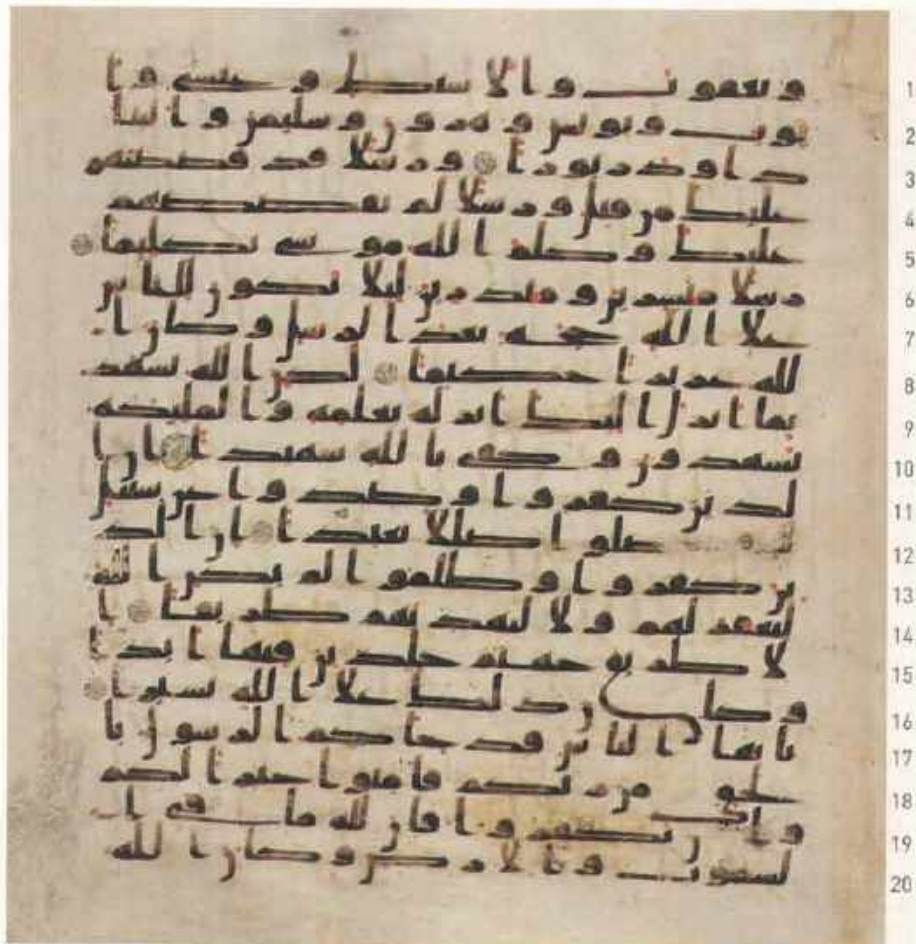 1 ويعقوب والاسبط وعيسى وا
2 يوب ويونس وهرون وسليمن واتينا
3 داود زبورا ورسلا قد قصصنهم
4 عليك من قبل ورسلا لم نقصصهم
5 عليك وكلم الله موسى تكليما
6 رسلا مبشرين ومنذرين ليلا يكون للناس
7 على الله حجة بعد الرسل وكان ا
8 لله عزيزا حكيما لكن الله يشهد
9 بما انزل اليك انزله بعلمه والمليكة
10 يشهدون وكفى بالله شهيدا ان ا
11 لذين كفروا وصدوا عن سبيل
12 الله قد ضلوا ضللا بعيدا ان الذ
13 ين كفروا وظلموا لم يكن الله
14 ليغفر لهم ولا ليهديهم طريقا ا
15 لا طريق جهنم خلدين فيها ابدا
16 وكان ذلك على الله يسيرا
17 يايها الناس قد جاكم الرسول با
18 لحق من ربكم فامنوا خيرا لكم
19 وان تكفروا فان لله ما في ا
20 لسموت والارض وكان الله